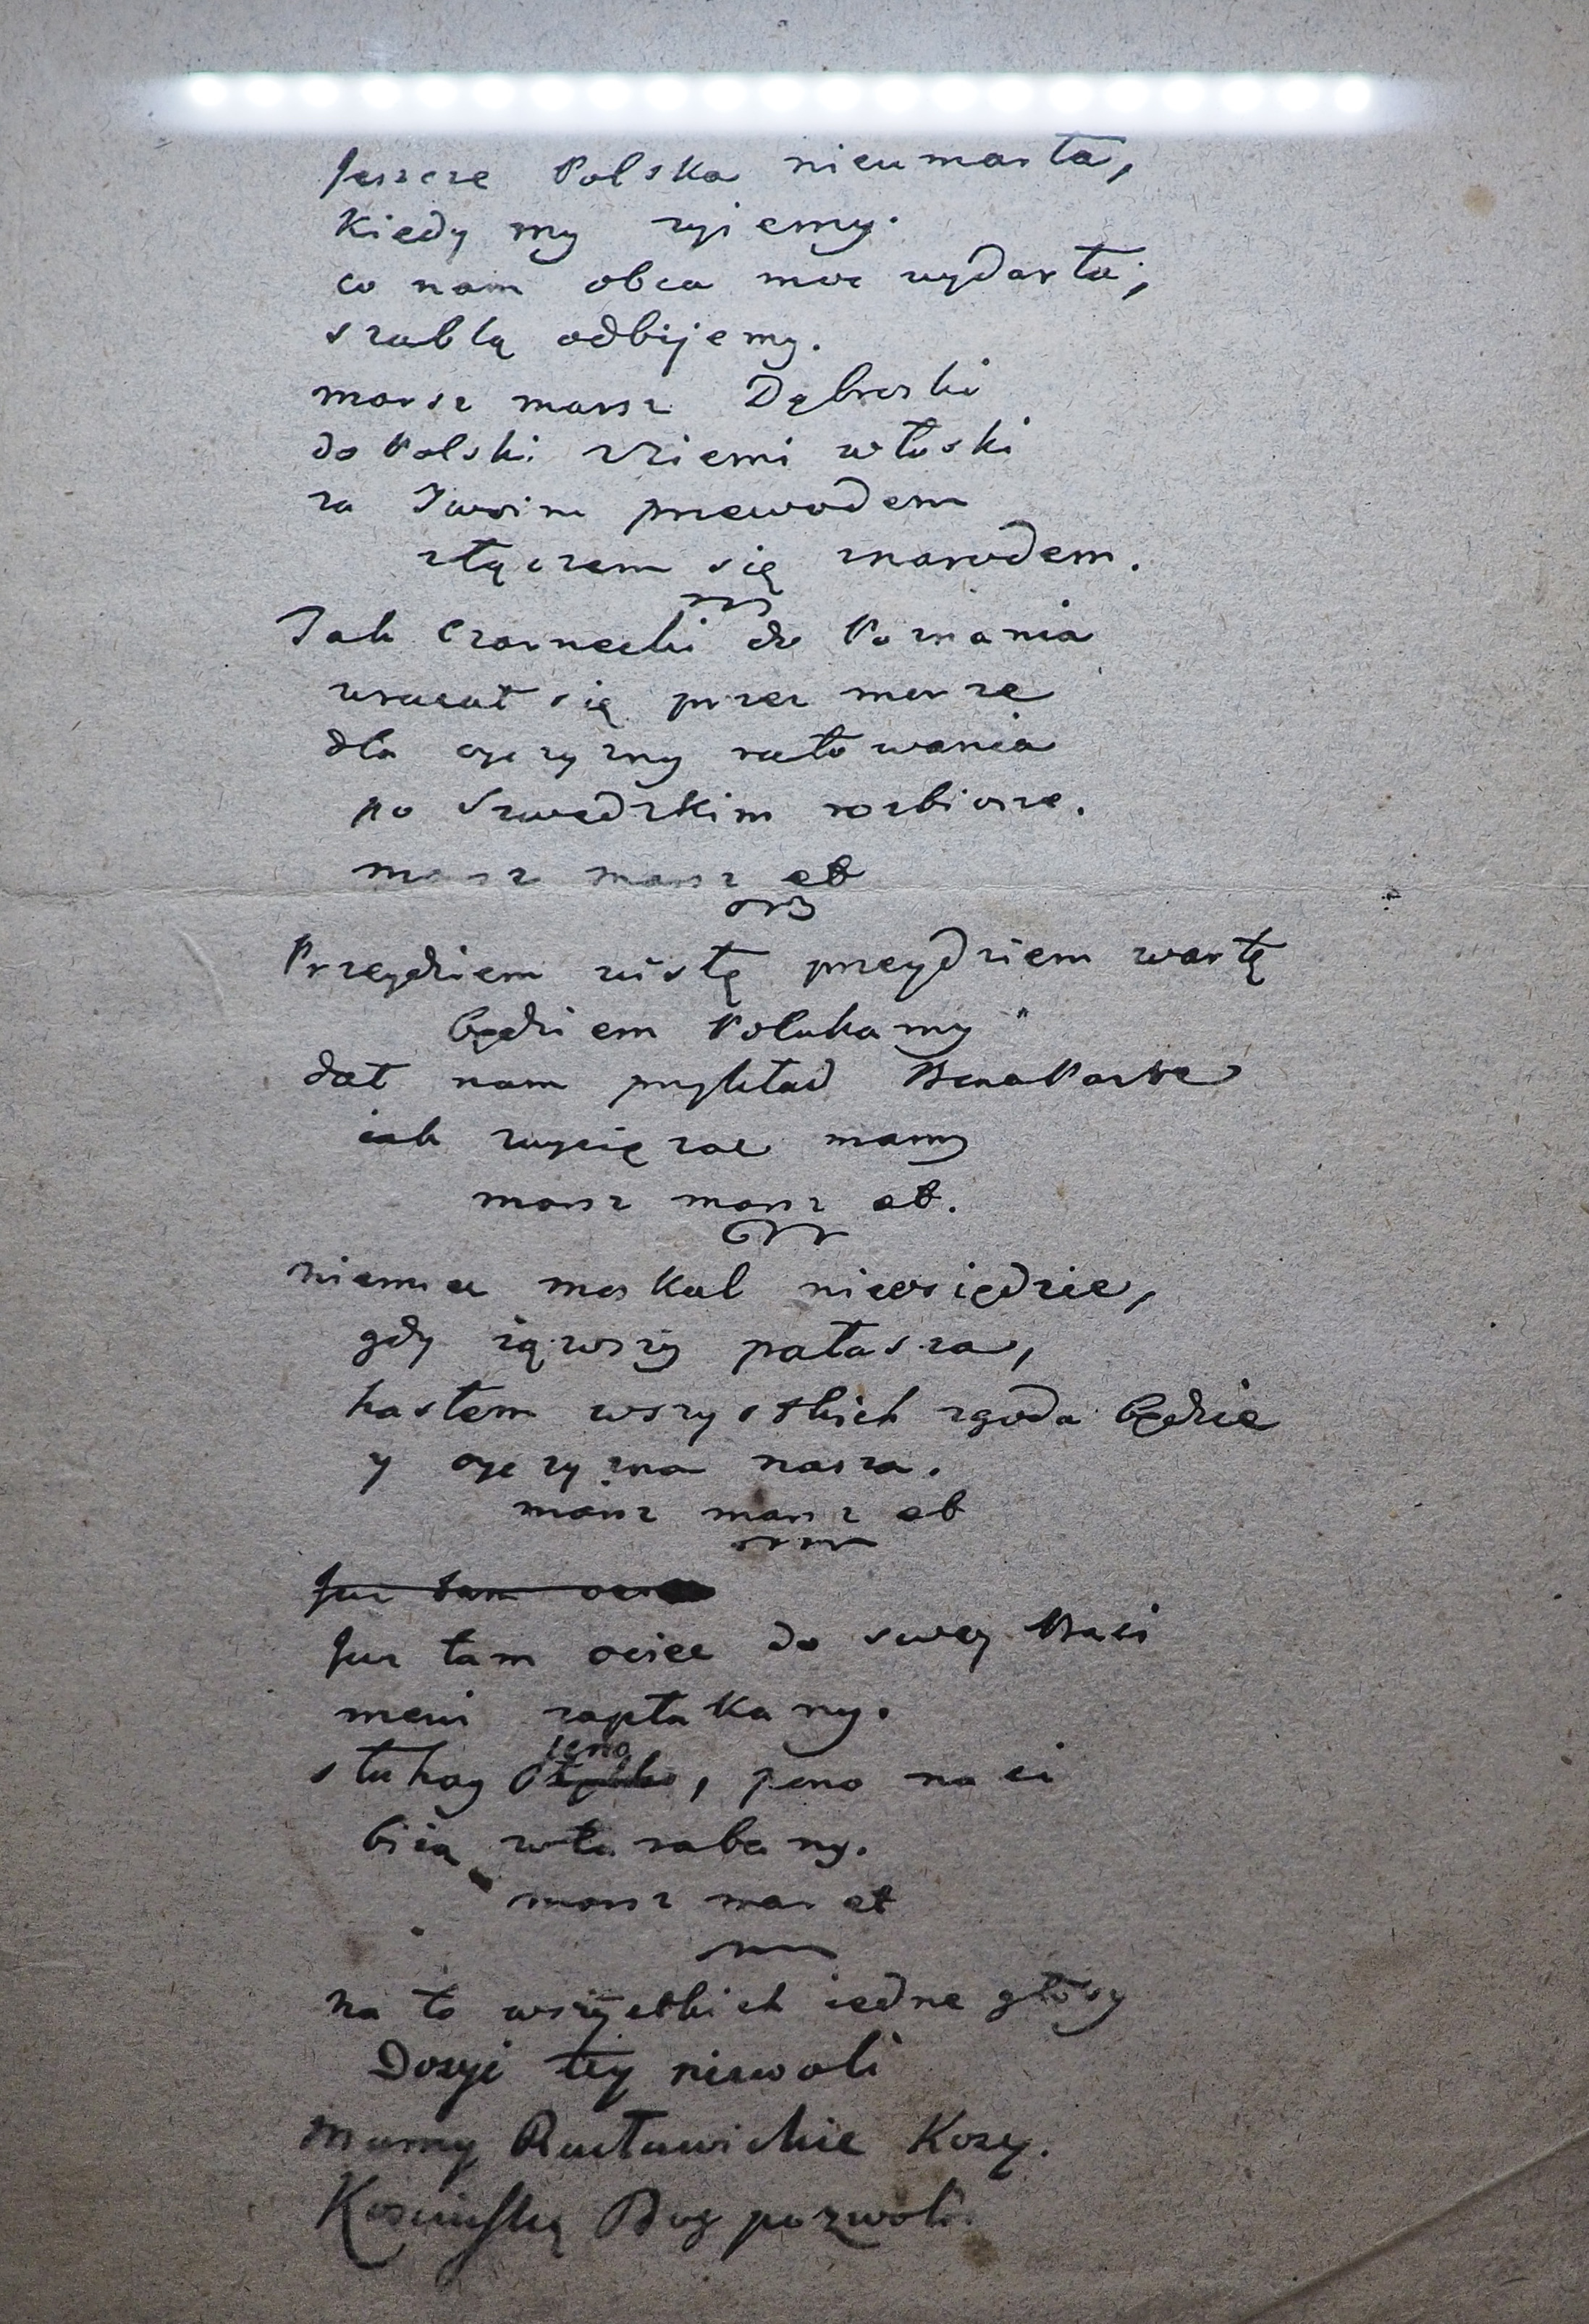 Jeszcze Polska nieumarła,
Kiedy my żyiemy.
co nam obca moc wydarła,
szablą odbijemy.
marsz marsz Dąbroski
do Polski zZiemi włoski
za Twoim przewodem
złączem się znarodem.
Jak Czarnecki do Poznania
wracał się przez morze
dla oyczyzny ratowania
po Szwedzkim rozbiorze.
marsz marsz et
Przeydziem wisłę przeydziem wartę
będziem Polakamy
dał nam przykład BonaParte
iak zwycięzac mamy
marsz marsz et.
niemiec moskal nieosiędzie,
gdy iąwszy pałasza,
hasłem wszystkich zgoda będzie
y oyczyzna nasza.
marsz marsz et
Juz tam ociec
Juz tam ociec do swey Basi
mowi zapłakany.
słuhay ieno, pono nasi
biią wtarabany.
marsz mar et
na to wszystkich iedne głosy
Dosyć tey niewoli
mamy Racławickie Kosy.
Kosciuszkę Bog pozwoli.